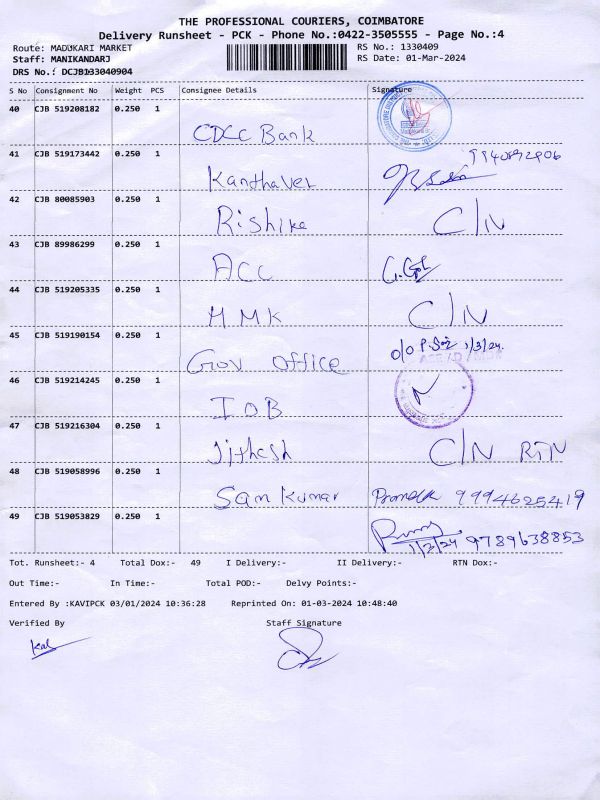 THE PROFESSIONAL COURIERS, COIMBATORE
Delivery Runsheet - PCK - Phone No.:0422-3505555 - Page No.:4
Route: MADUKARI MARKET RS No.: 1330409
Staff: MANIKANDARJ RS Date: 01-Mar-2024
DRS No.: DCJB133040904
S No Consignment No Weight PCS Consignee Details Signature
40 CJB 519208182 0.250 1
CDCC Bank
41 CJB 519173442 0.250 1
Kanthavel
42 CJB 80085903 0.250 1
Rishike C/N
43 CJB 89986299 0.250 1
ACC
44 CJB 519205335 0.250 1
HMK C/N
45 CJB 519190154 0.250 1
Gov office 1/3/24.
46 CJB 519214245 0.250 1
IOB
47 CJB 519216304 0.250 1
Jithesh C/N RTN
48 CJB 519058996 0.250 1
Sam Kumar 9994625419
49 CJB 519053829 0.250 1
9789638853
Tot. Runsheet:- 4 Total Dox:- 49 I Delivery:- II Delivery:- RTN Dox:-
Out Time:- In Time:- Total POD:- Delvy Points:-
Entered By :KAVIPCK 03/01/2024 10:36:28 Reprinted On: 01-03-2024 10:48:40
Verified By Staff Signature